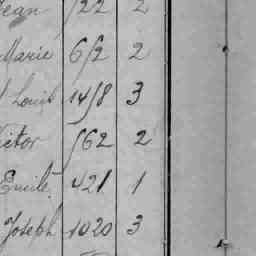 Jean 522 2
Marie 652 2
Louis 1458 3
Victor 562 2
Emile 421 1
Joseph 1020 3